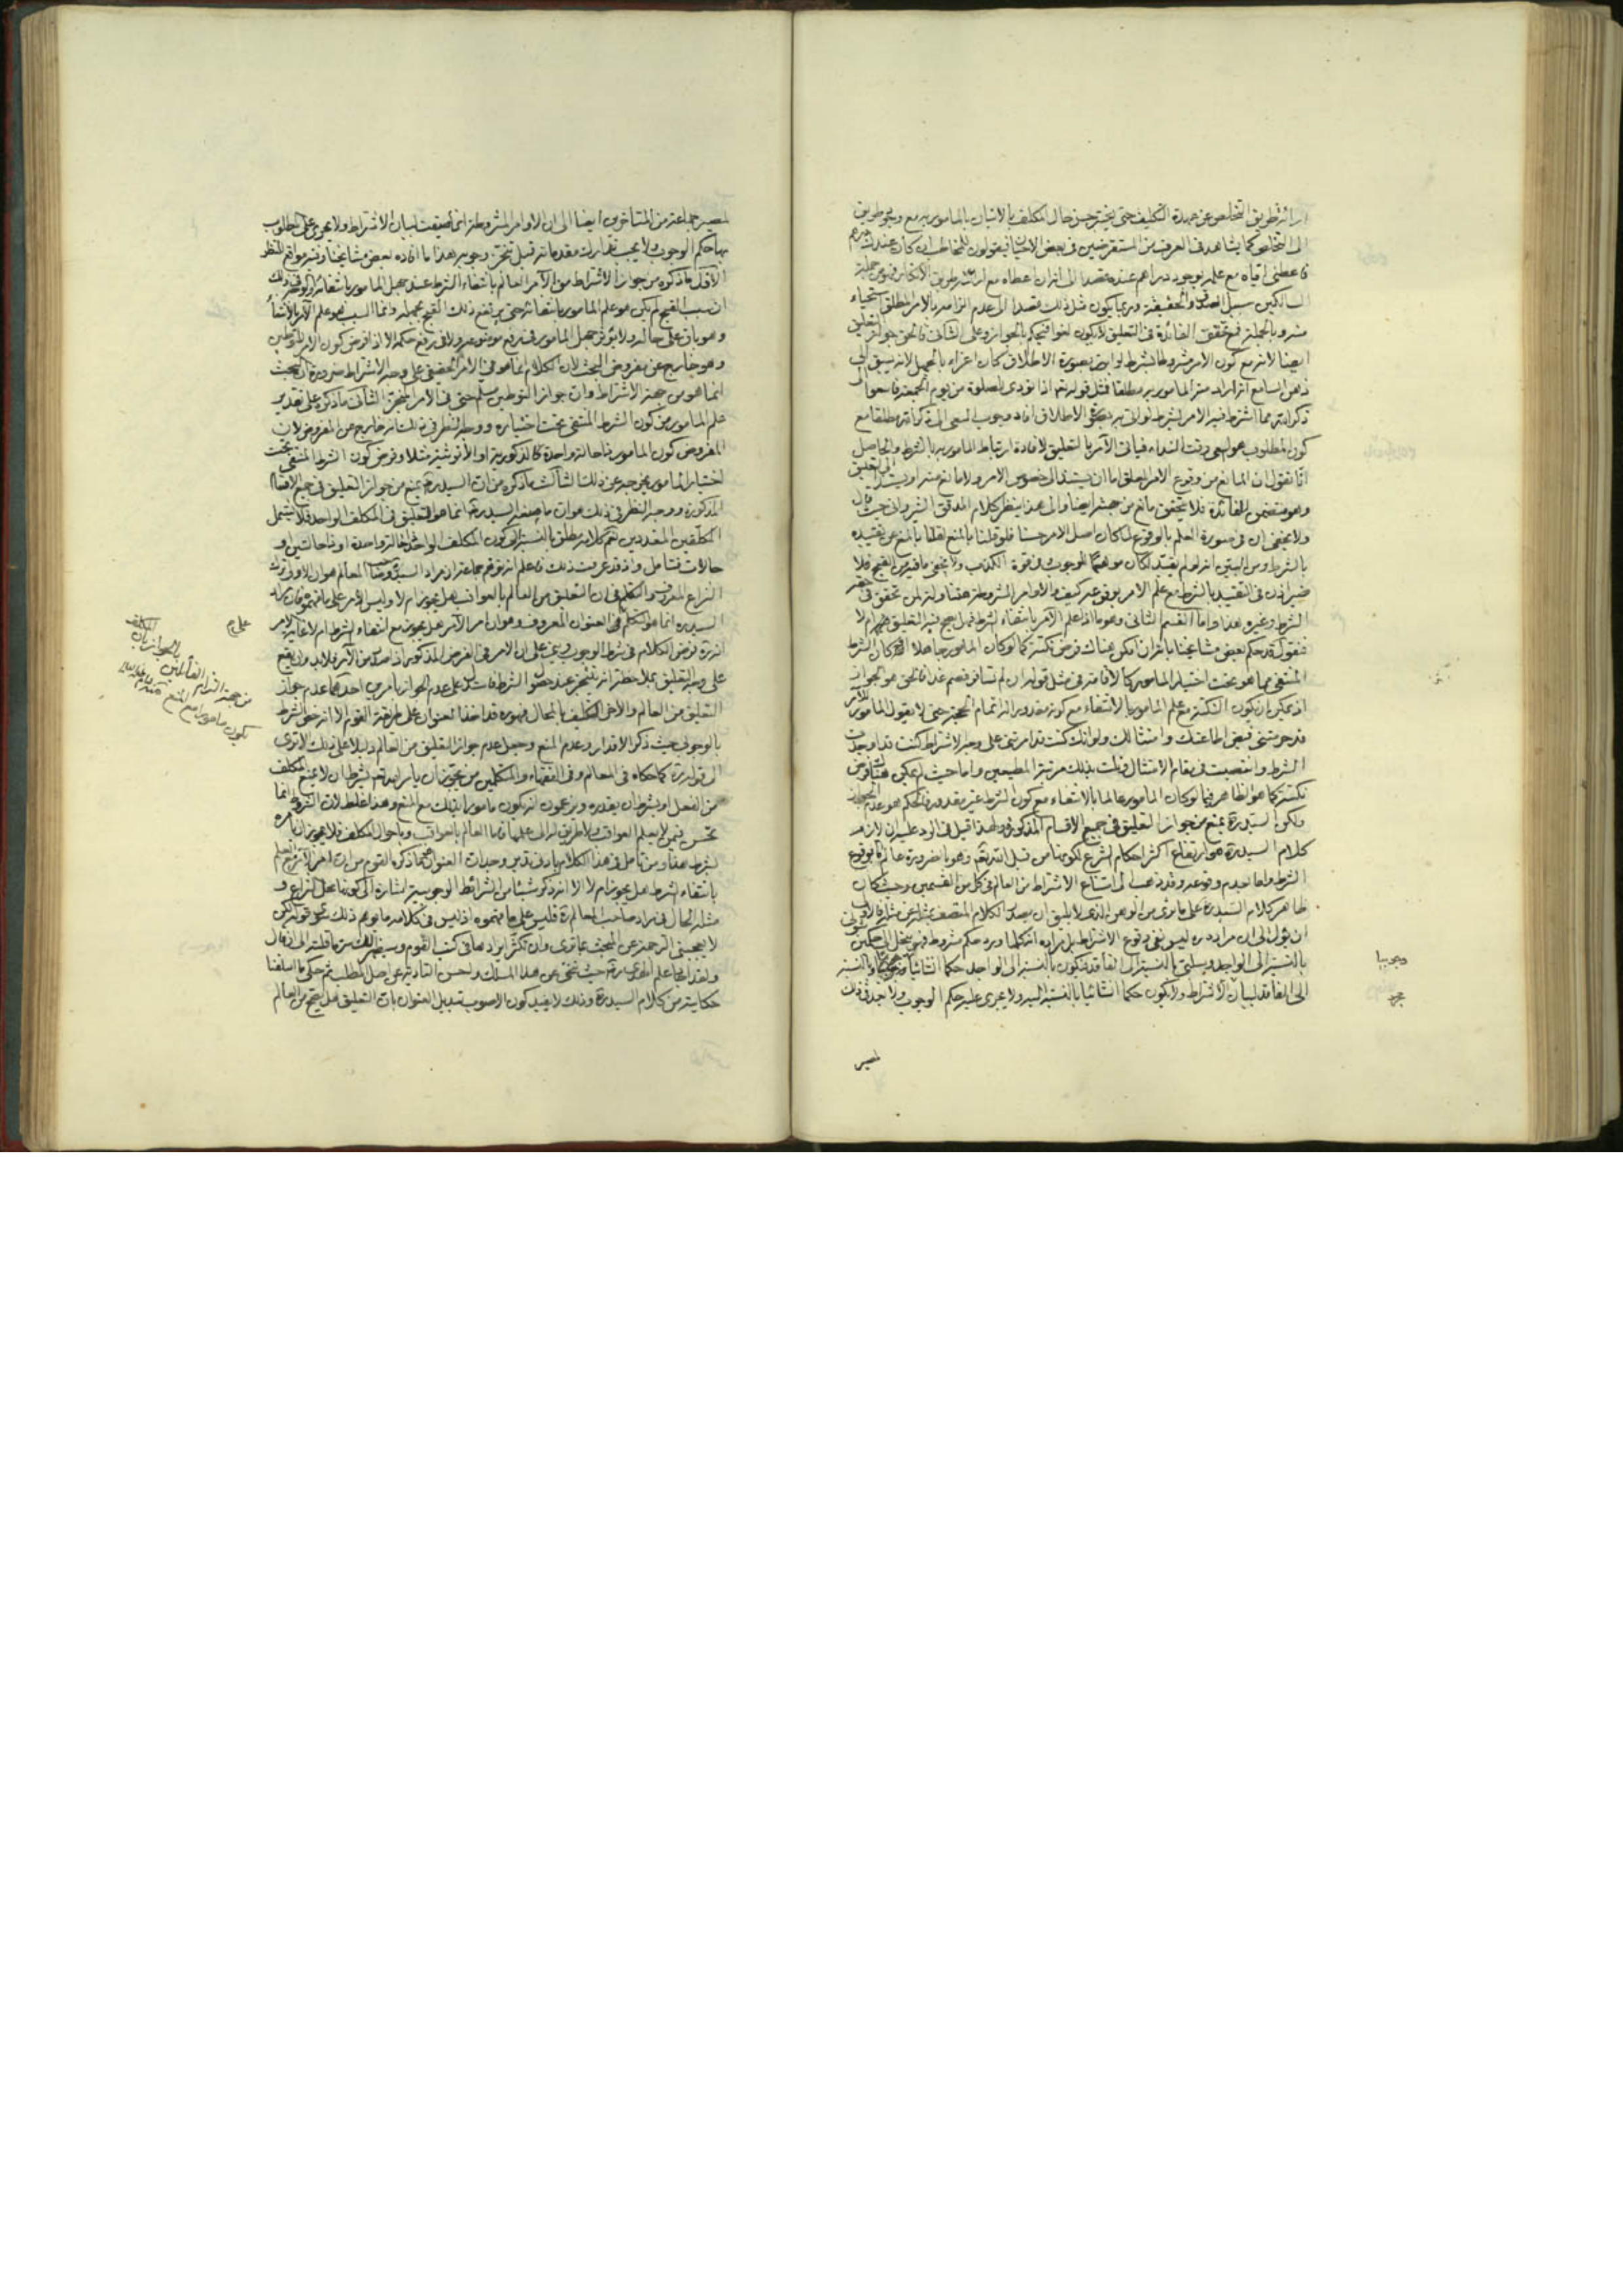 ارائة طريق التخلص عن عهدة التكليف حتى يختبر حسن حال المكلف بالاتيان بالمامور به مع وجود طريق
الى التخلص كما يشاهد فى العرف من المستقرضين فى بعض الاحيان فيقولون للمخاطب ان كان عندك درهم
فاعطنى اياه مع علمه بوجود دراهم عنده قصدا الى اعطاه مع ارائة طريق الانكار
السالكين سبيل الصدق والحقيقة وربما يكون مثل ذلك قصدا الى عدم الزامه بالامر المطلق استحياء
منه وبالجملة فمع تحقق الفائدة فى التعليق لا يكون لغوا فيحكم بالجواز وعلى الثانى فالحق جواز التعليق
ايضا لانه مع كون الامر مشروطا بشرط لو اتى به بصورة الاطلاق كان اغراء بالجهل لانه يسبق الى
ذهن السامع انه اراد منه المامور به مطلقا فمثل قوله تعالى اذا نودى للصلوة من يوم الجمعة فاسعوا الى
ذكر الله مما اشترط فيه الامر بشرط لو اتى به على الاطلاق افاد وجوب السعى الى ذكر الله مطلقا مع
كون المطلوب هو السعى وقت النداء فياتى الآمر بالتعليق لافادة ارتباط المامور به بالشرط والحاصل
انا نقول ان المانع من وقوع الامر المعلق اما ان يستند الى خصوص الامر ولا مانع منه او يستند الى التعليق
وهو متضمن للفائدة فلا يتحقق مانع من جهته ايضا والى هذا ينظر كلام المدقق الشيروانى حيث قال
ولا يخفى ان فى صورة العلم بالوقوع لما كان اصل الامر حسنا فلو قلنا بالمنع لقلنا بالمنع عن تقييده
بالشرط ومن البين انه لو لم يقيد لكان موهما للوجوب فى قوة الكذب ولا يخفى ما فيه من القبح فلا
ضير اذن فى التقييد بالشرط مع علم الامر بوقوعه كيف والاوامر المشروطة حسنها وقبحها لمن تحقق فى حقه
الشرط وغيره هذا واما القسم الثانى وهو ما اذا علم الآمر بانتفاء الشرط فهل يصح فيه التعليق ام لا
فنقول قد حكم بعض مشايخنا بانه ان امكن هناك فرض نكتة كما لو كان المامور جاهلا او كان الشرط
المنتفى مما هو تحت اختيار المامور كالاقامة فى مثل قوله ان لم تسافر فصم غدا فالحق هو الجواز
اذ يمكن ان يكون النكتة مع علم المامور بالانتفاء مع كونه مقدورا له اتمام الحجة حتى لا يقول المامور للآمر
قد حرمتنى فيض اطاعتك وامتثالك ولو انك كنت قد امرتنى على وجه الاشتراط كنت قد اوجدت
الشرط وانتصبت فى مقام الامتثال ونلت بذلك مرتبة المطيعين واما حيث لم يمكن هناك فرض
نكتة كما هو الظاهر فيما لو كان المامور عالما بالانتفاء مع كون الشرط غير مقدور فالحكم هو عدم الجواز
ولكن السيد ره يمنع من جواز التعليق فى جميع الاقسام المذكورة ولهذا قيل فى الرد عليه ان لازم
كلام السيد ره هو ارتفاع اكثر احكام الشرع لكونها من قبل الله تعالى وهو بالضرورة عالم بوقوع
الشرط واما بعدم وقوعه وقد ذهب الى امتناع الاشتراط من العالم فى كل من القسمين وحيث كان
ظاهر كلام السيد ره على ما ترى من الوهن الذى لا يليق ان يصدر الكلام المتصف بمثله عن مثله فالاولى
ان يؤول الى ان مراده ره ليس نفى وقوع الاشتراط بل مراده ان كلما ورد حكم مشروط فهو ينحل الى حكمين
بالنسبة الى الواجد وسلبى بالنسبة الى الفاقد فيكون بالنسبة الى الواجد حكما انشائيا وبالنسبة
الى الفاقد لبيان الاشتراط ولا يكون حكما انشائيا بالنسبة اليه ولا يجرى عليه حكم الوجوب ولا يجدى فى ذلك
وجوبيا
لمصير
لمصير جماعة من المتاخرين ايضا الى ان الاوامر المشروطة انما صيغت لبيان الاشتراط ولا يجرى على المطلوب
بها حكم الوجوب ولا يجب تدارك مقدماته قبل تنجز وجوبه هذا ما افاده بعض مشايخنا وفيه مواقع للنظر
الاول ما ذكره من جواز الاشتراط من الآمر العالم بانتفاء الشرط عند جهل المامور بانتفائه والوجه فى ذلك
ان سبب القبح لم يكن هو علم المامور بانتفائه حتى يرتفع ذلك القبح بجهله وانما السبب هو علم الآمر بالانتفاء
وهو باق على حاله ولا يؤثر جهل المامور فى رفع موضوعه ولا فى رفع حكمه الا اذا فرض كون الامر للتوطين
وهو خارج عن مفروض البحث لان الكلام انما هو فى الامر الحقيقى على وجه الاشتراط ضرورة ان البحث
انما هو من جهة الاشتراط وان جواز التوطين مسلم حتى فى الامر المنجز الثانى ما ذكره على تقدير
علم المامور من كون الشرط المنتفى تحت اختياره ووجه النظر فى ذلك انه خارج عن المفروض لان
المفروض كون المامور ذا حالة واحدة كالذكورية او الانوثية مثلا وفرض كون الشرط المنتفى تحت
اختيار المامور يخرجه عن ذلك الثالث ما ذكره من ان السيد ره يمنع من جواز التعليق فى جميع الاقسام
المذكورة ووجه النظر فى ذلك هو ان ما منعه السيد ره انما هو التعليق فى المكلف الواحد فلا يشمل
المكلفين المتعددين نعم كلامه مطلق بالنسبة الى كون المكلف الواحد ذا حالة واحدة او ذا حالتين او
حالات فتامل واذ قد عرفت ذلك فاعلم انه توهم جماعة ان مراد السيد وصاحب المعالم هو ان الاولى ترك
النزاع المعروف والتكلم فى ان التعليق من العالم بالعواقب هل يجوز ام لا وليس الامر على ما فهموه فان مراد
السيد ره انما هو التكلم فى العنوان المعروف وهو ان امر الآمر هل يجوز مع انتفاء الشرط ام لا غاية الامر
انه ره فرض الكلام فى شرط الوجوب وبنى على ان الامر فى الفرض المذكور اذا صدر من الآمر فلا بد وان يقع
على وجه التعليق بملاحظة انه تنجز عند حصول الشرط فاستدل على عدم الجواز بامرين احدهما عدم جواز
التعليق من العالم والآخر التكليف بالمحال فهو ره قد اخذ العنوان على طريقة القوم الا انه خص الشرط
بالوجوبى حيث ذكر الاقدار وعدم المنع وجعل عدم جواز التعليق من العالم دليلا على ذلك الا ترى
الى قوله ره كما حكاه فى المعالم وفى الفقهاء والمتكلمين من يجوز ان يامر الله تعالى بشرط ان لا يمنع المكلف
من الفعل او بشرط ان يقدره ويزعمون انه يكون مامورا بذلك مع المنع وهذا غلط لان الشرط انما
يحسن فيمن لا يعلم العواقب ولا طريق له الى علمها فاما العالم بالعواقب وباحوال المكلف فلا يجوز ان يامره
بشرط هذا ومن تامل فى هذا الكلام بادنى تدبر وجد ان العنوان هو ما ذكره القوم من ان امر الآمر مع العلم
بانتفاء الشرط هل يجوز ام لا الا انه ذكر شيئا من الشرائط الوجوبية اشارة الى كونها محل النزاع و
مثله الحال فى مراد صاحب المعالم ره فليس على ما فهموه اذ ليس فى كلامه ما يوهم ذلك سوى قوله لكن
لا يعجبنى الترجمة عن البحث بما ترى وان تكثر ايرادها فى كتب القوم وسيظهر لك سر ما قلته الى ان قال
ولقد اجاد علم الهدى ره حيث تنحى عن هذا المسلك واحسن التادية عن اصل المطلب ثم حكى ما اسلفنا
حكايته من كلام السيد ره وذلك لا يفيد كون الاصوب تبديل العنوان بان التعليق هل يصح من العالم
من جهة التزام القائلين بالجواز بان المكلف
يكون مامورا مع المنع